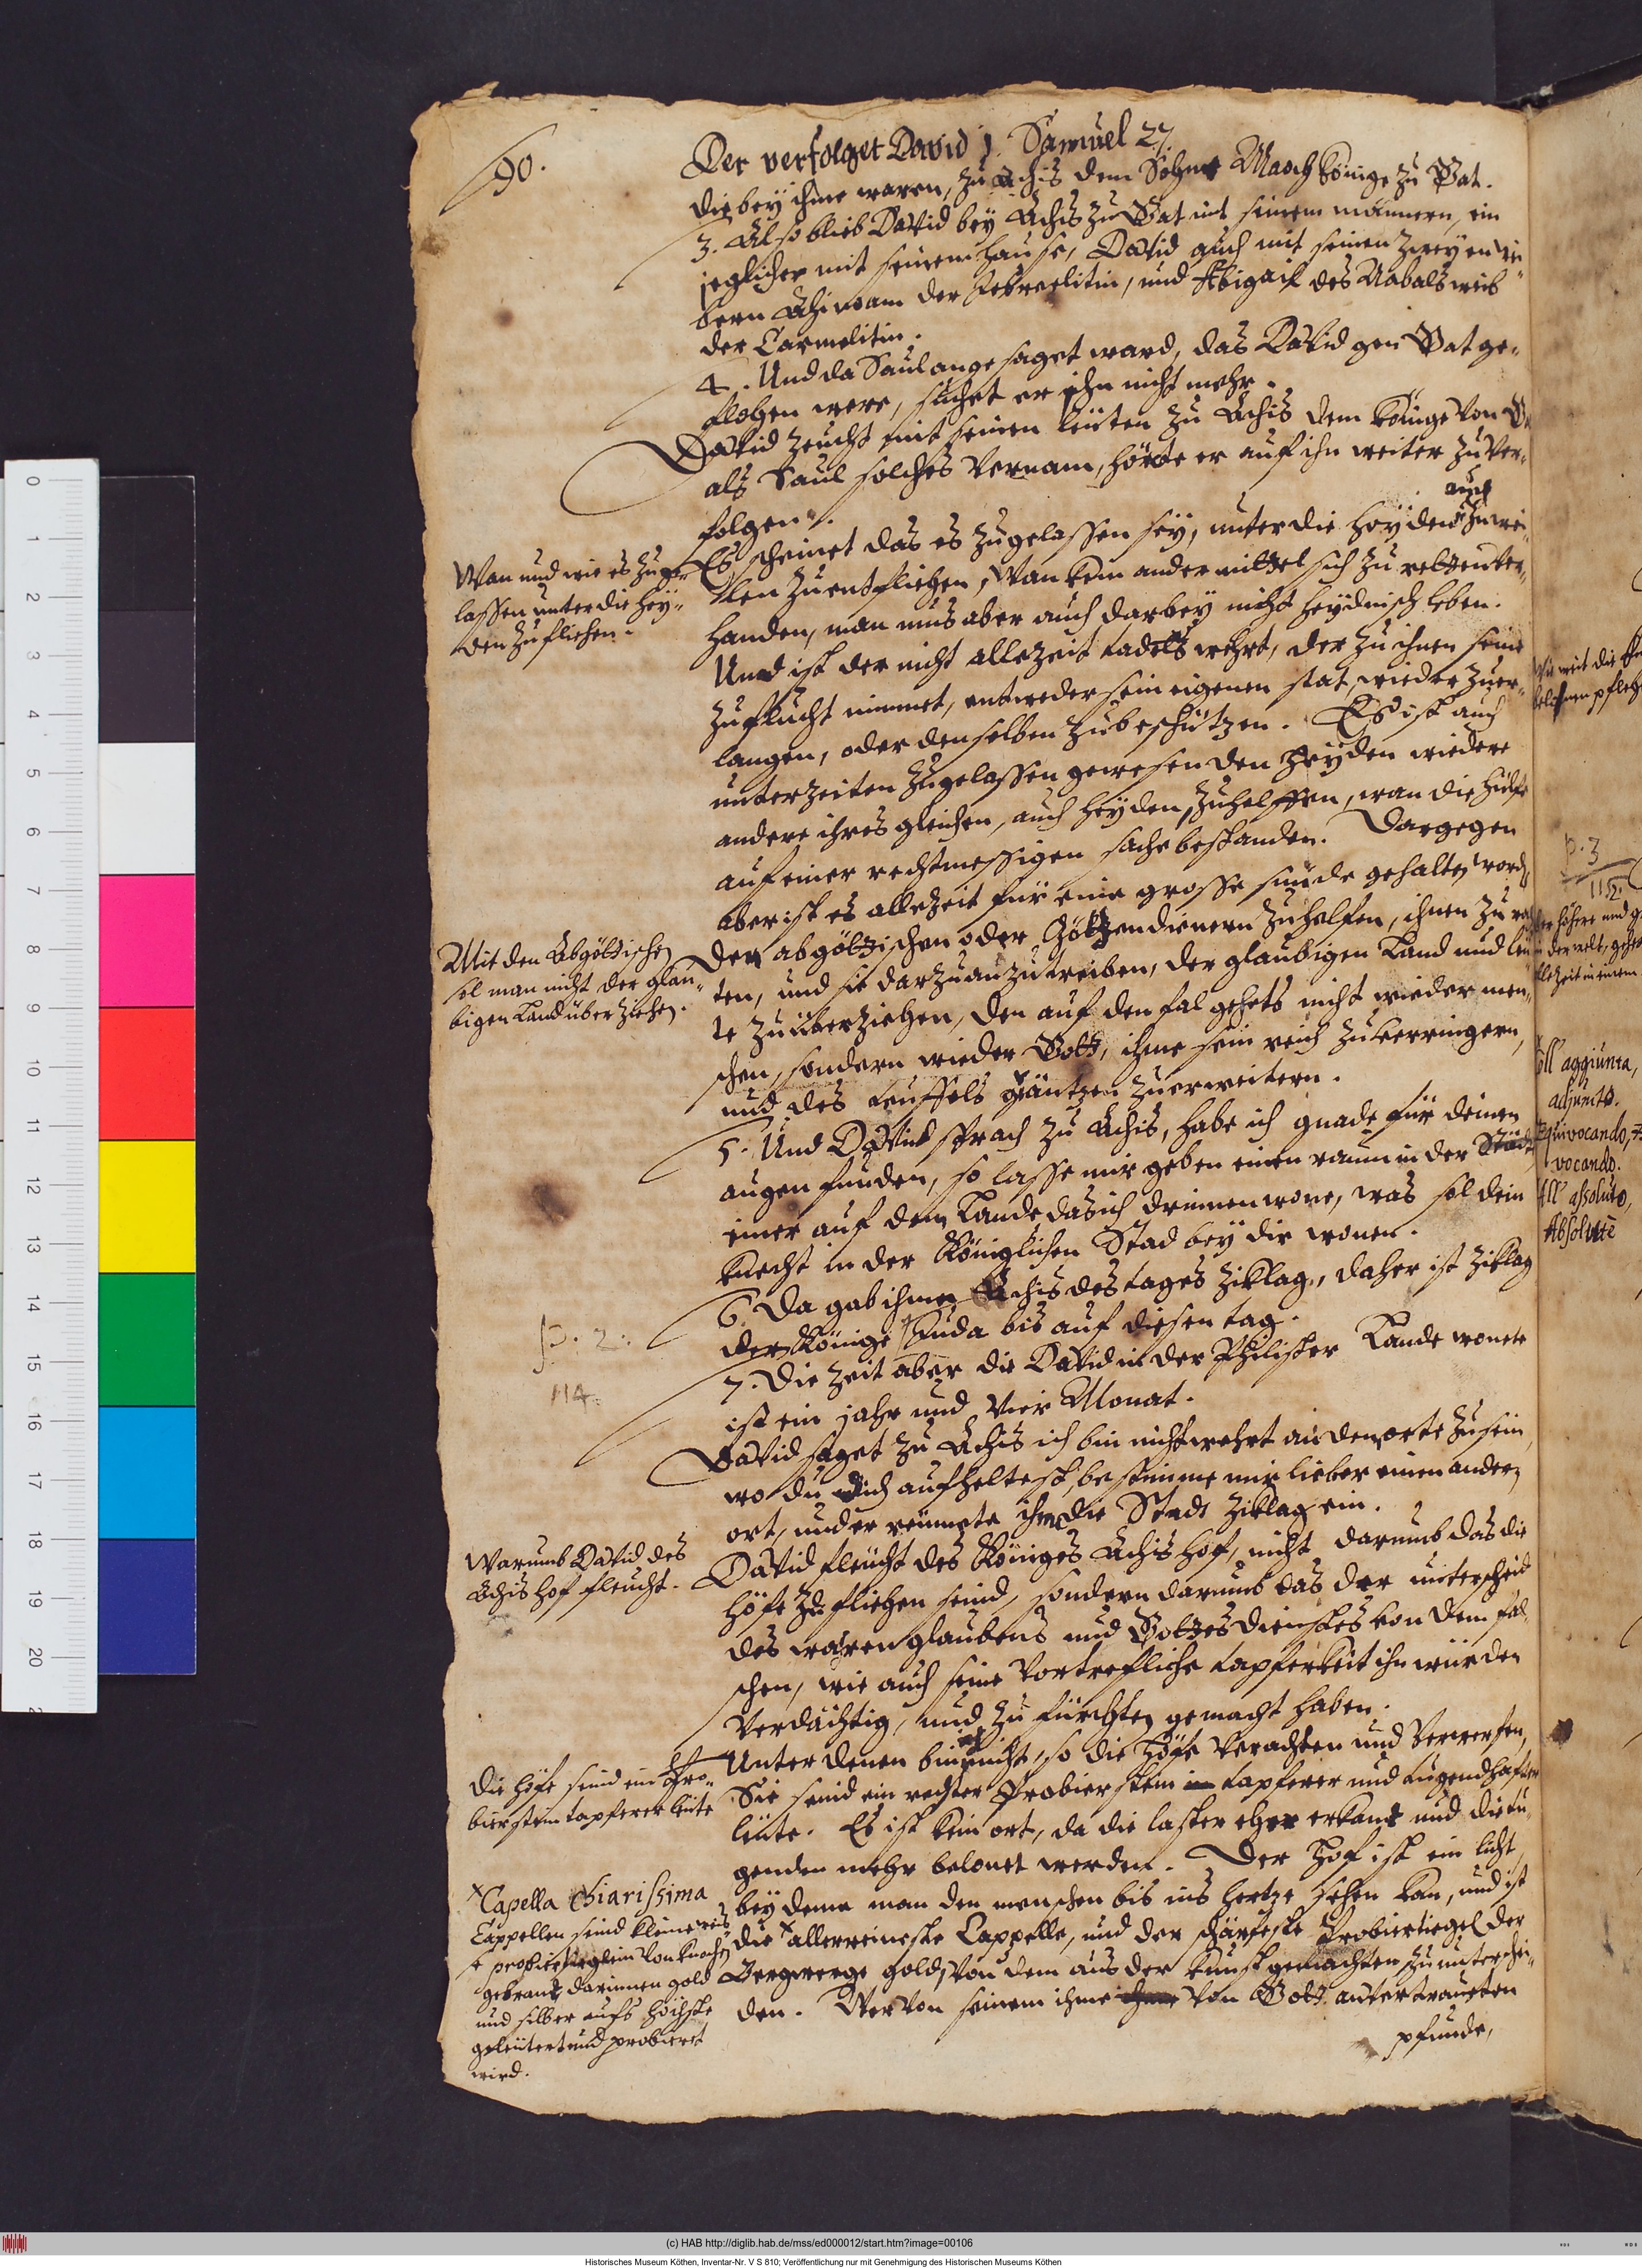 90.
Der verfolget David 1. Samuel 27.
die bey ihme waren, zu Achis dem Sohne Maoch Könige zu Gat.
3. Also blieb David bey Achis zu Gat mit seinen männern, ein
jeglicher mit seinem hause, David auch mit seinen zweyen wei„
bern Ahinoam der Jesreelitin, und Abigail des Nabals weib
der Carmelitin.
4. Und da Saul angesaget ward, das David gen Gat ge„
flohen were, suchet er ihn nicht mehr.
David zeucht mit seinen leüten zu Achis dem Könige von
als Saul solches vernam, hörete er auf ihn weiter zu ver„
folgen.
Wan und wie es zuge„
lassen unter die hey„
den zufliehen.
auch
Es scheinet das es zugelassen sey, unter die heyden
len zuentfliehen, wan kein ander mittel sich zu retten ver„
handen, man mus aber auch darbey nicht heydnisch leben.
Und ist der nicht allezeit tadels wehrt, der zu ihnen seine
zuflucht nimmet, entweder sein eigenen stat, wieder zuer„
langen, oder denselben zubeschützen. Es ist auch
unterzeiten zugelassen gewesen den heyden wiedere
andere ihres gleichen, auch heyden zuhelffen, wan die hülfe
auf einer rechtmessigen sache bestanden. Dargegen
aber ist es allezeit für eine grosse sünde gehalten word
Mit den Abgöttischen
sol man nicht der glau„
bigen Land überziehen.
den abgöttischen oder Götzendienern zuhelfen, ihnen zu ra
ten, und sie darzu anzutreiben, der glaubigen Land und leü
te zuüberziehen, den auf den fal gehets nicht wieder men„
schen, sondern wieder Gott, ihme sein reich zuverringern,
und des teuffels gräntzen zuerweitern.
5. Und David sprach zu Achis, habe ich gnade für deinen
augen funden, so lasse mir geben einen raum in der Städte
einer auf dem Lande das ich drinnen wone, was sol dein
knecht in der Königlichen Stad bey dir wonen.
6. Da gab ihme Achis des tages Ziklag, daher ist Ziklag
der Könige Juda bis auf diesen tag.
p. 2.
114
7. Die zeit aber die David in der Philister Lande wonete
ist ein jahr und vier Monat.
David saget zu Achis ich bin nicht wehrt an dem orte zu sein
wo du dich aufheltest, bestimme mir lieber einen andern
ort, und er reümete ihm die Stadt Ziklag ein.
Warumb David des
Achis hof fleucht.
David fleücht des Königes Achis hof, nicht darumb das die
höfe zu fliehen seind, sondern darumb das der unterscheid
des waren glaubens und Gottes dienstes von dem fal„
schen, wie auch seine vortrefliche tapferkeit ihn würden
verdächtig, und zu fürchten gemacht haben.
Die höfe seind ein Pro„
bierstein tapferer leüte
Unter denen bin ich nicht, so die höfe verachten und verwerfen,
Sie seind ein rechter Probierstein tapferer und tugendhafter
leüte. Es ist kein ort, da die laster eher erkant und die tu„
genden mehr belonet werden. Der hof ist ein licht,
bey deme man den menschen bis ins hertze sehen kan, und ist
die x allerreineste Cappelle, und der schärfeste Probiertiegel der
Bergwerge gold, von dem aus der kunst gemachten zu unterschei„
den. Wer von seinem ihme von Gott anvertraueten
pfunde,
x Capella chiarissima
Cappellen seind kleine
probiertieglein von knochen
gebrant darinnen gold
und silber aufs höchste
geleütert und probieret
wird.
p. 3
112.
all' aggiunta,
adjuncto.
Equivocando,
vocando.
All' assoluto,
Absolute
(c) HAB http://diglib.hab.de/mss/ed000012/start.htm?image=00106
Historisches Museum Köthen, Inventar-Nr. V S 810; Veröffentlichung nur mit Genehmigung des Historischen Museums Köthen
0
1
2
3
4
5
6
7
8
9
10
11
12
13
14
15
16
17
18
19
20